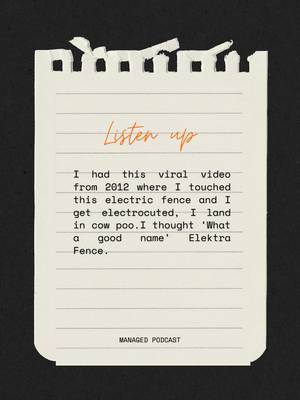 Listen up
I had this viral video
from 2012 where I touched
this electric fence and I
get electrocuted, I land
in cow poo.I thought 'What
a good name' Elektra
Fence.
MANAGED PODCAST